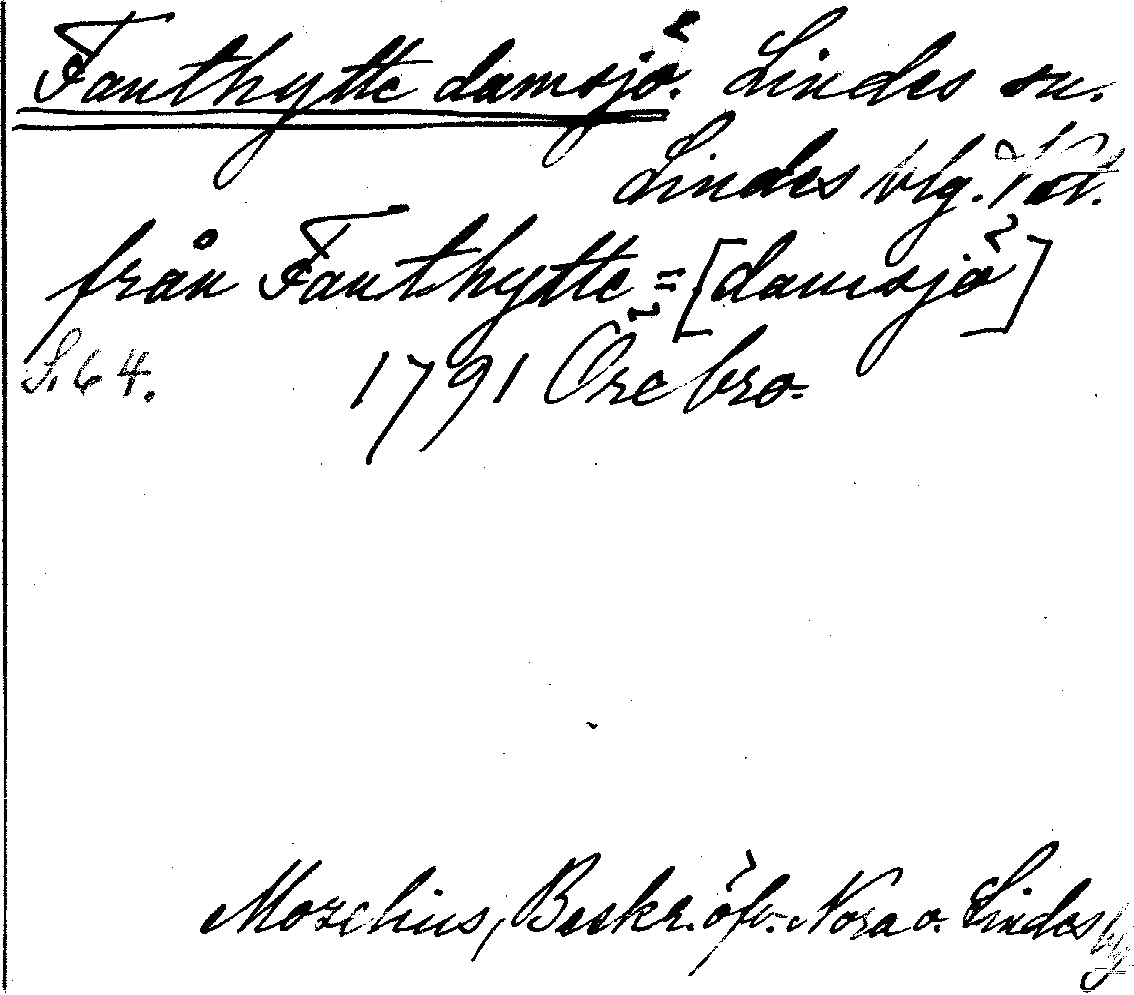 Fanthytte damsjö. Lindes sn.
Lindes blg. Vst.
från Fanthytte=[damsjö]
S. 64. 1791 Örebro.
Mozelius, Beskr. öfv. Nora o. Lindes blg